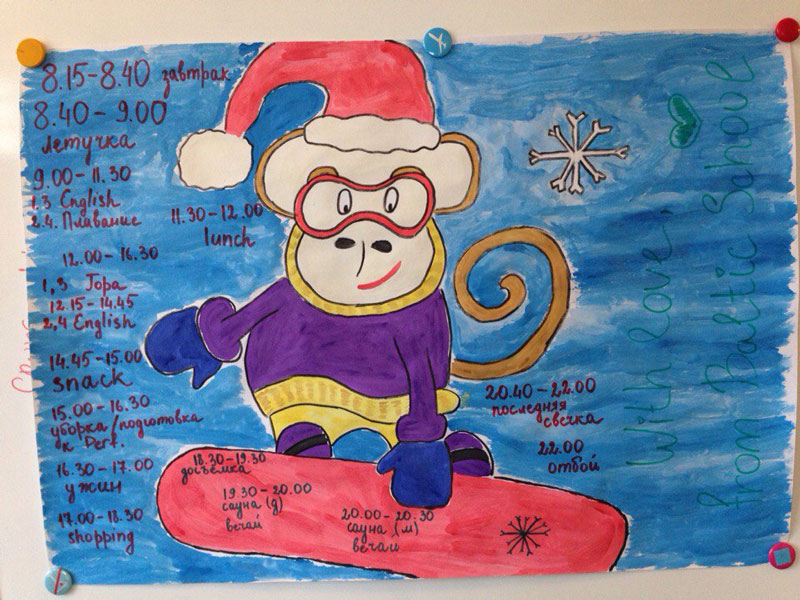 8.15-8.40 завтрак
8.40-9.00
летучка
9.00-11.30
1.3 English
2.4. Плавание
11.30-12.00
lunch
12.00-16.30
1,3 Гора
12.15-14.45
2,4 English
14.45-15.00
snack
15.00-16.30
уборка/подготовка
к Perf.
16.30-17.00
ужин
17.00-18.30
shopping
18.30-19.30
досъёмка
19.30-20.00
сауна (д)
вечай
20.00-20.30
сауна (м)
вечай
20.40-22.00
последняя
свечка
22.00
отбой
With love,
from Baltic School